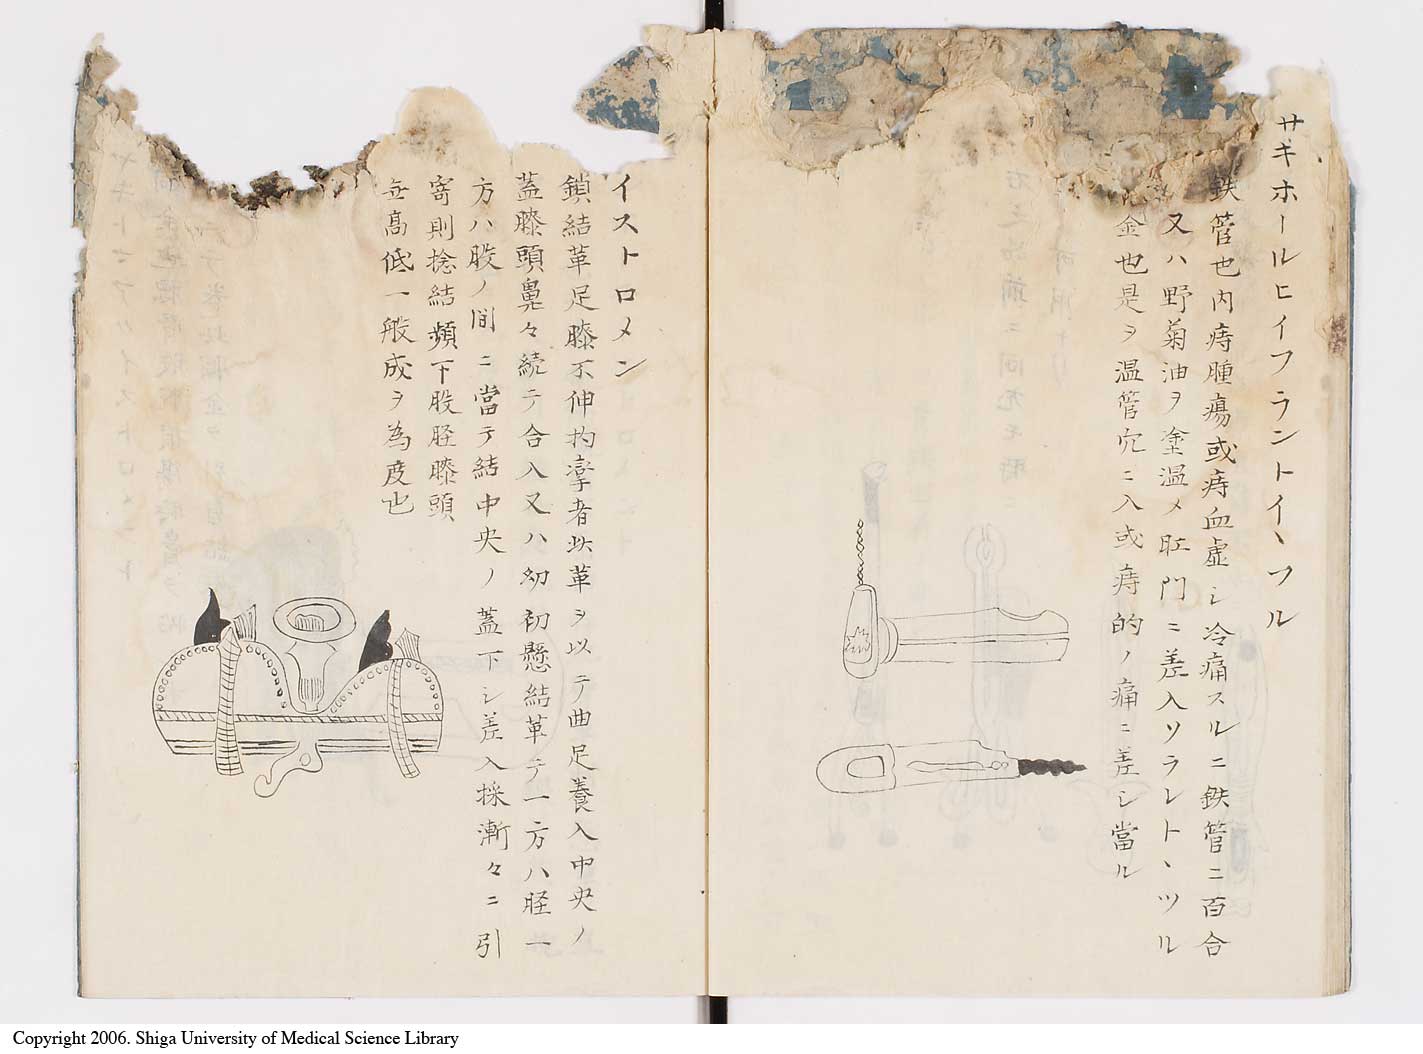 サキホールヒイフラントイヽフル
鉄管也内痔腫瘍或痔血虚シ冷痛スルニ鉄管ニ百合
又ハ野菊油ヲ塗温メ肛門ニ差入ソラレトヽツル
金也是ヲ温管穴ニ入或痔的ノ痛ニ差シ當ル
イストロメン
鎖結革足膝不伸拘攣者此革ヲ以テ曲足養入中央ノ
蓋膝頭鼻々続テ合入又ハ幼初懸結革テ一方ハ脛一
方ハ股ノ間ニ當テ結中央ノ蓋下シ差入採漸々ニ引
寄則捻結頻下股脛膝頭
無高低一般成ヲ為度也
Copyright 2006. Shiga University of Medical Science Library